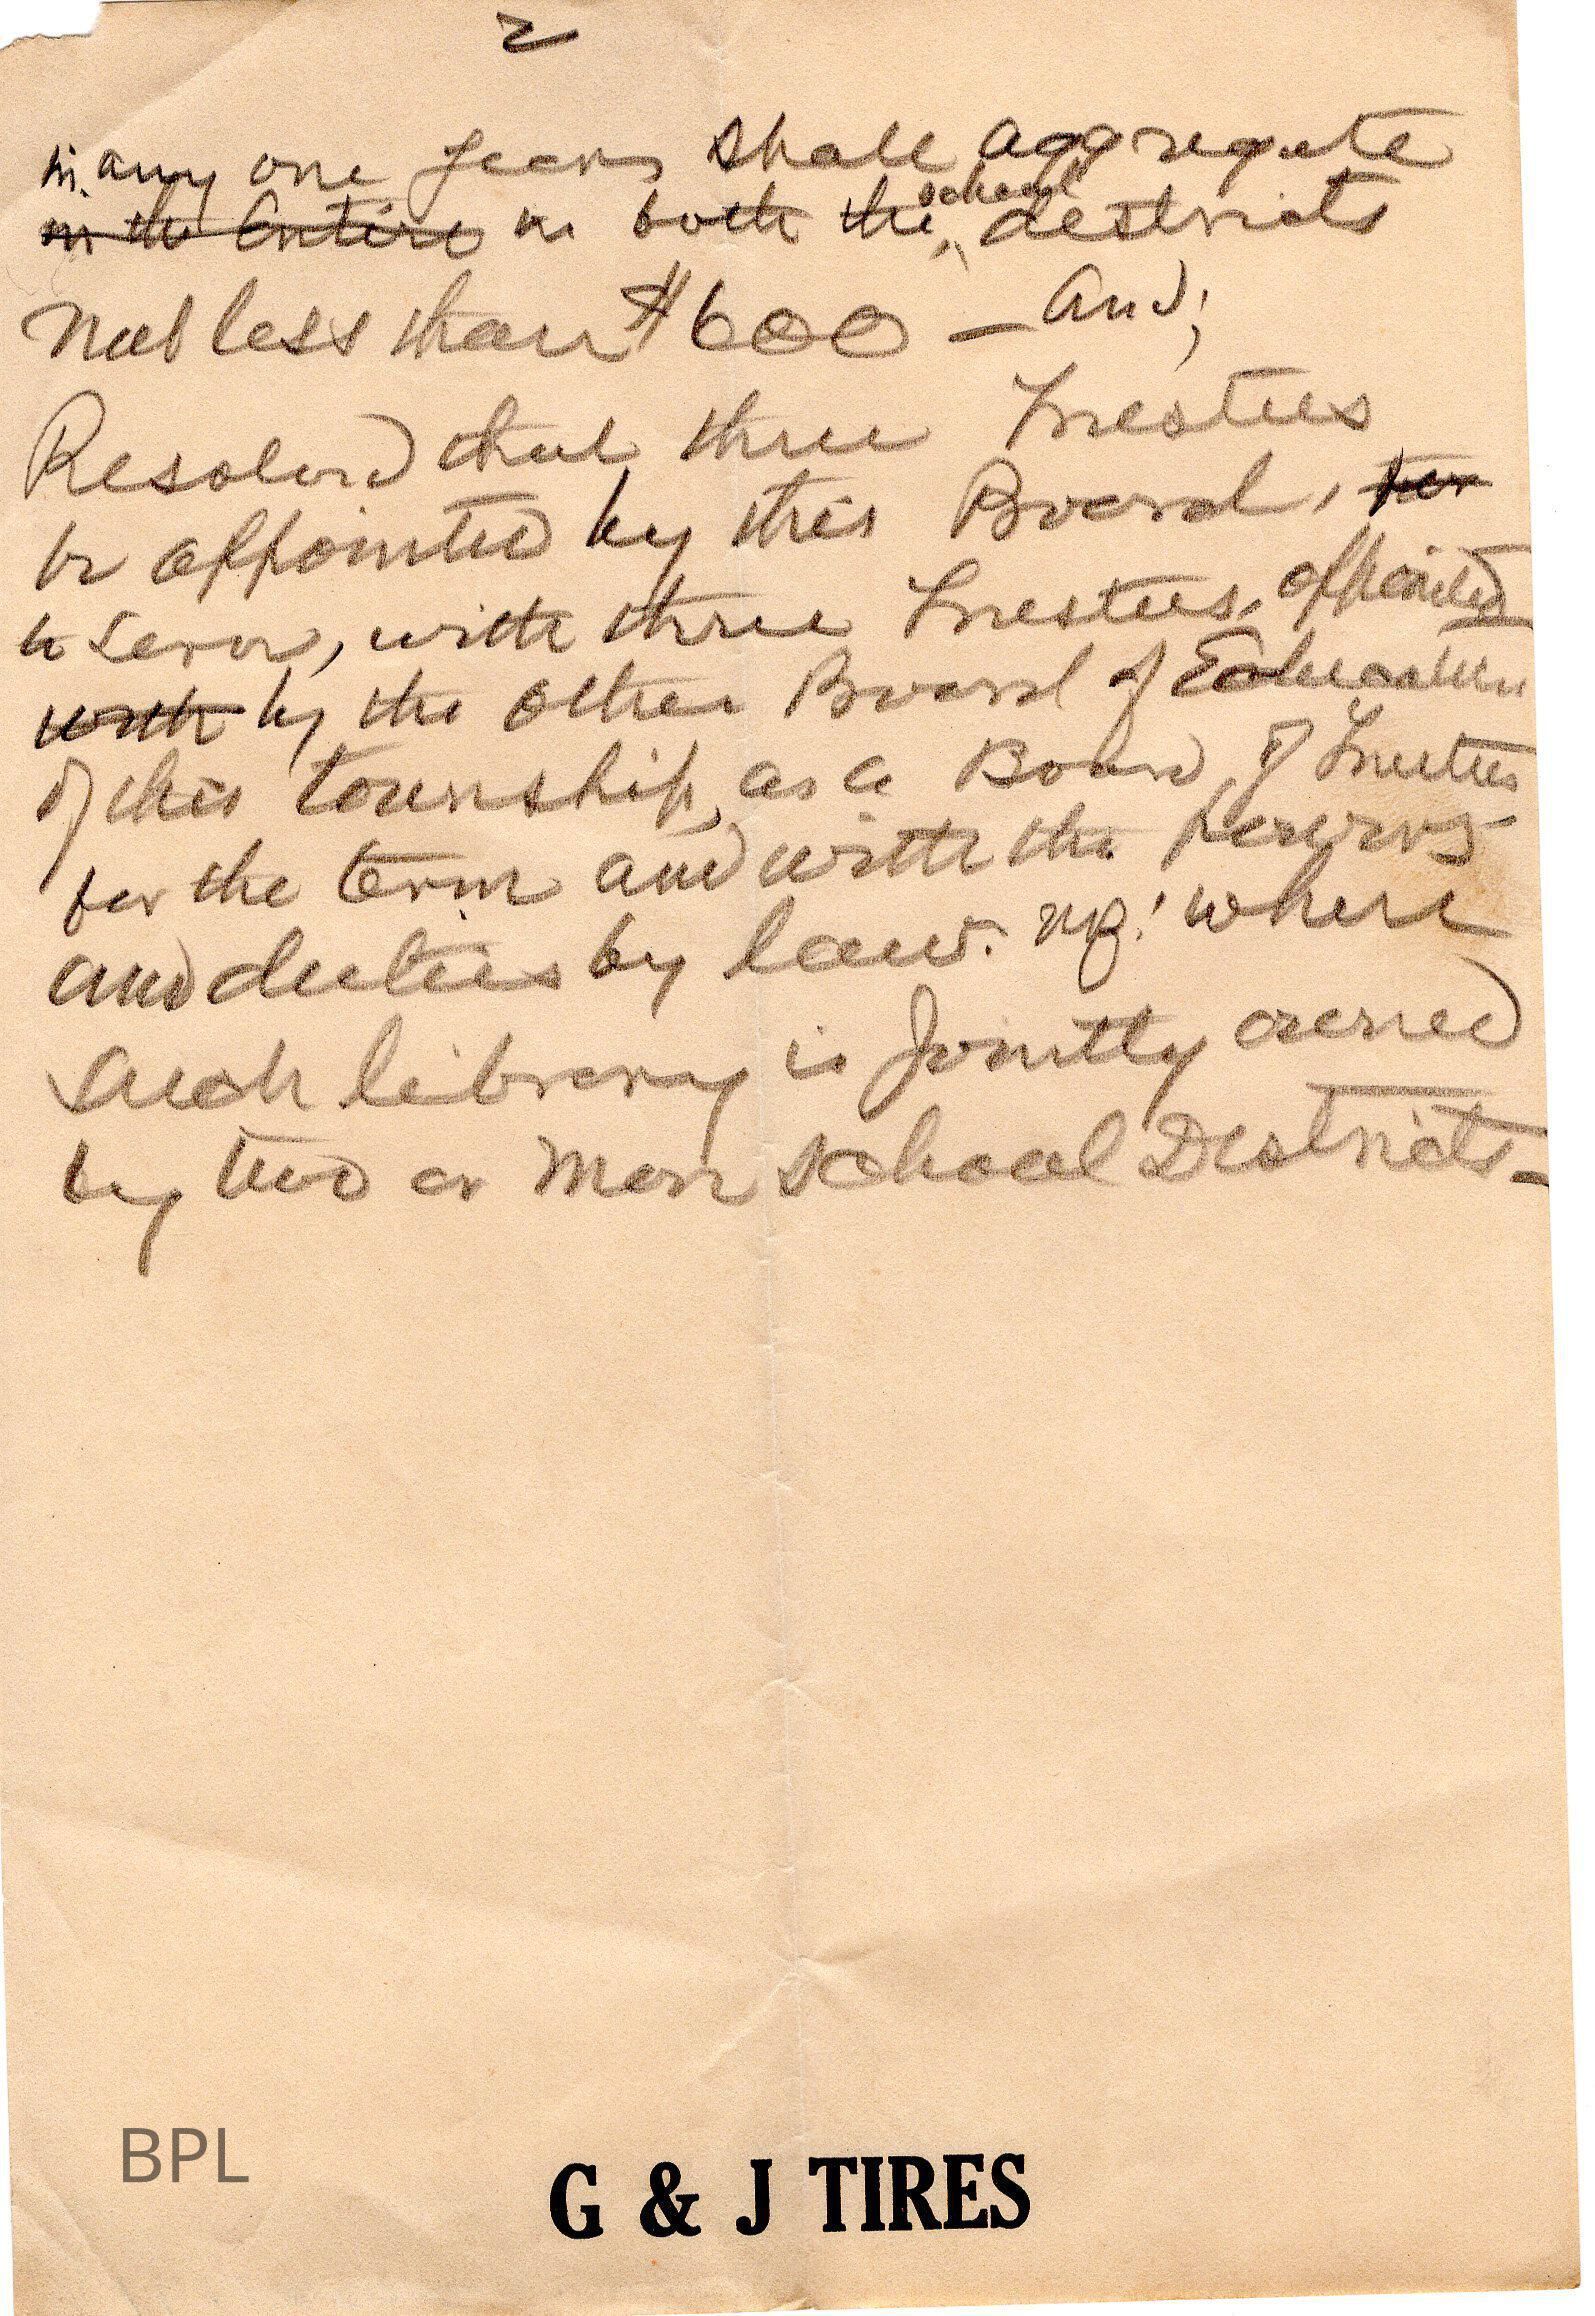 2
in any one year, shall aggregate
in the Entire in both the school districts
not less than $600 — And;
Resolved that three Trustees
be appointed by this Board, for
to serve, with three Trustees, appointed
with by the other Board of Education
of this township, as a Board of Trustees
for the term and with the powers
and duties by law. where
such library is jointly owned
by two or more school Districts —
BPL
G & J TIRES